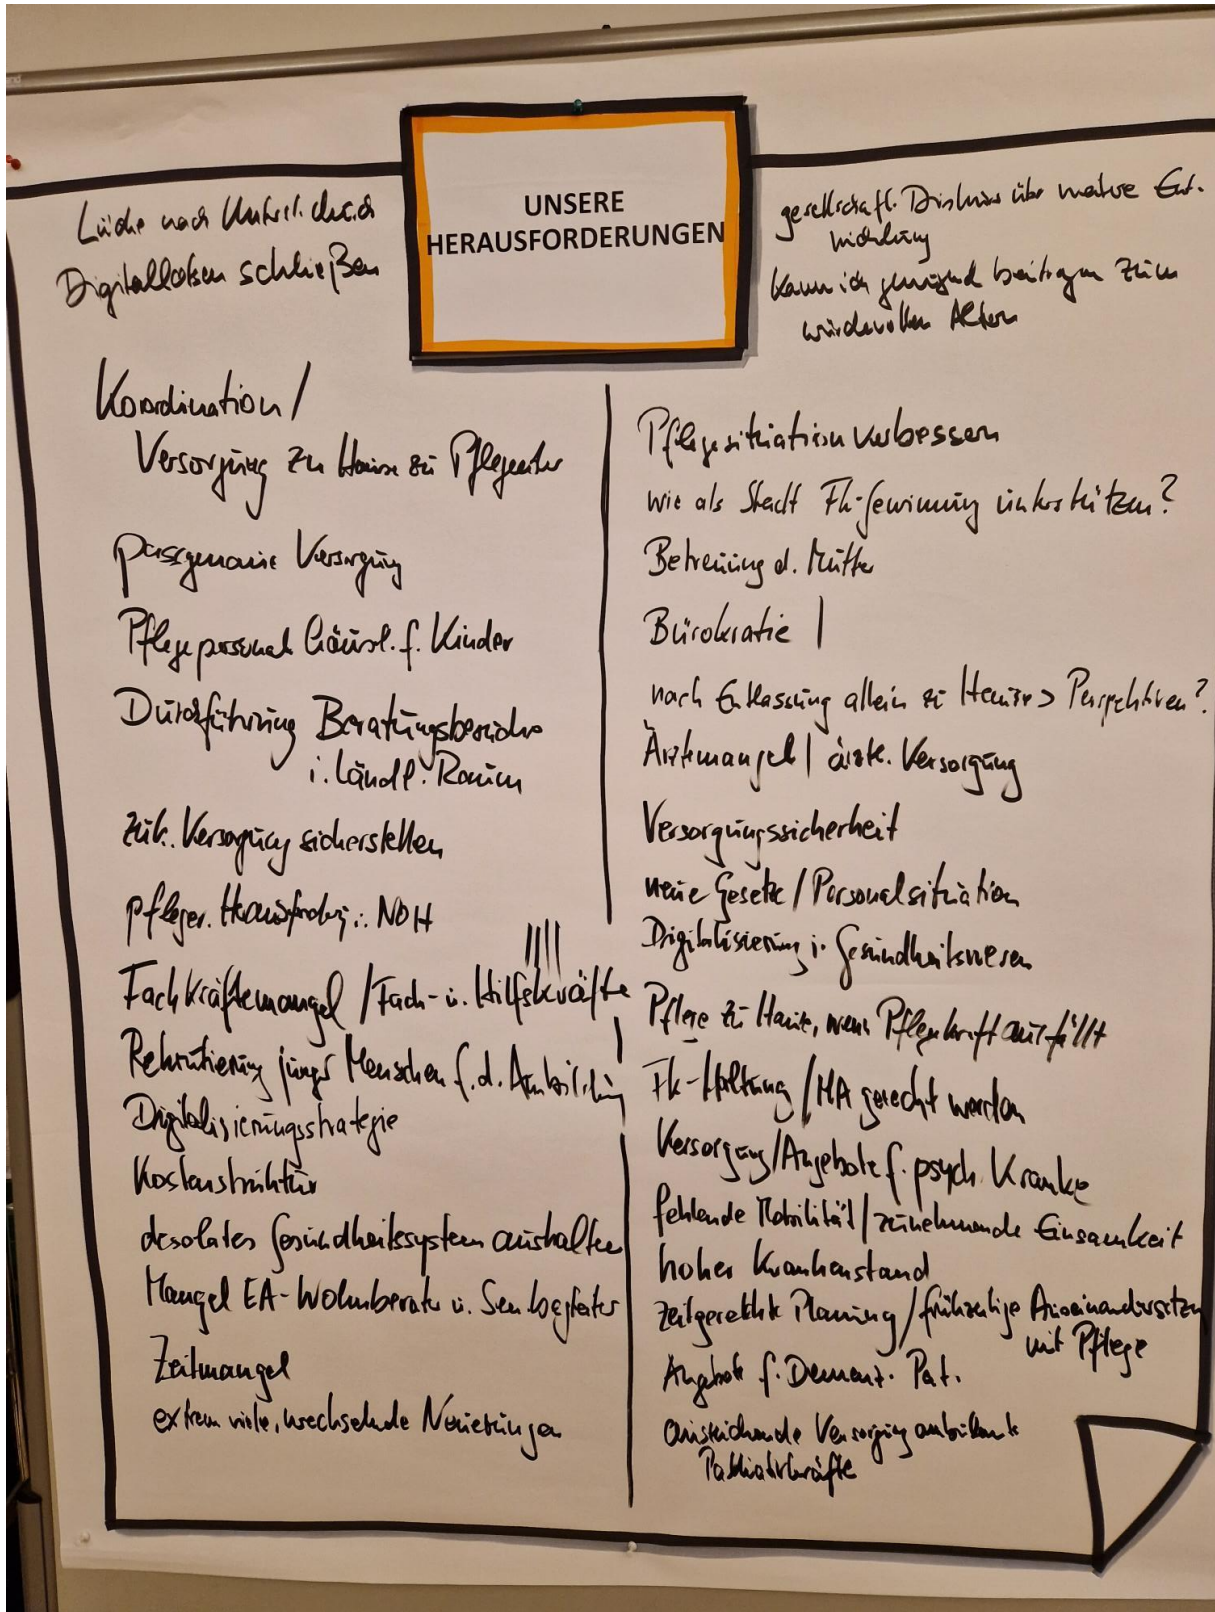 UNSERE
HERAUSFORDERUNGEN
Lücke nach Unterst. durch
Digitallotsen schließen
gesellschaft. Diskurs über Ent-
wicklung
kann ich genügend beitragen zum
würdevollen Altern
Koordination /
Versorgung zu Hause zu
passgenaue Versorgung
Pflegepersonal häusl. f. Kinder
Durchführung Beratungsbesuche
i. ländl. Raum
zuk. Versorgung sicherstellen
pfleger. i. NDH
Fachkräftemangel / Fach- u. Hilfskräfte
Rekrutierung junger Menschen f. d. Ausbildung
Digitalisierungsstrategie
Kostenstruktur
desolates Gesundheitssystem aushalten
Mangel EA-Wohnberater u. Sen.begleiter
Zeitmangel
extrem viele, wechselnde Neuerungen
Pflegesituation verbessern
wie als Stadt Fk-Gewinnung unterstützen?
Betreuung d. Mutter
Bürokratie |
nach Entlassung allein zu Hause > Perspektiven?
Ärztemangel | ärztl. Versorgung
Versorgungssicherheit
neue Gesetze / Personalsituation
Digitalisierung i. Gesundheitswesen
Pflege zu Hause, wenn Pflegekraft ausfällt
Fk-Haltung / MA gerecht werden
Versorgung / Angebote f. psych. Kranke
fehlende Mobilität / zunehmende Einsamkeit
hoher Krankenstand
zeitgerechte Planung / frühzeitige Auseinandersetzen
mit Pflege
Angebote f. Dement. Pat.
ausreichende Versorgung ambulante
Palliativkräfte